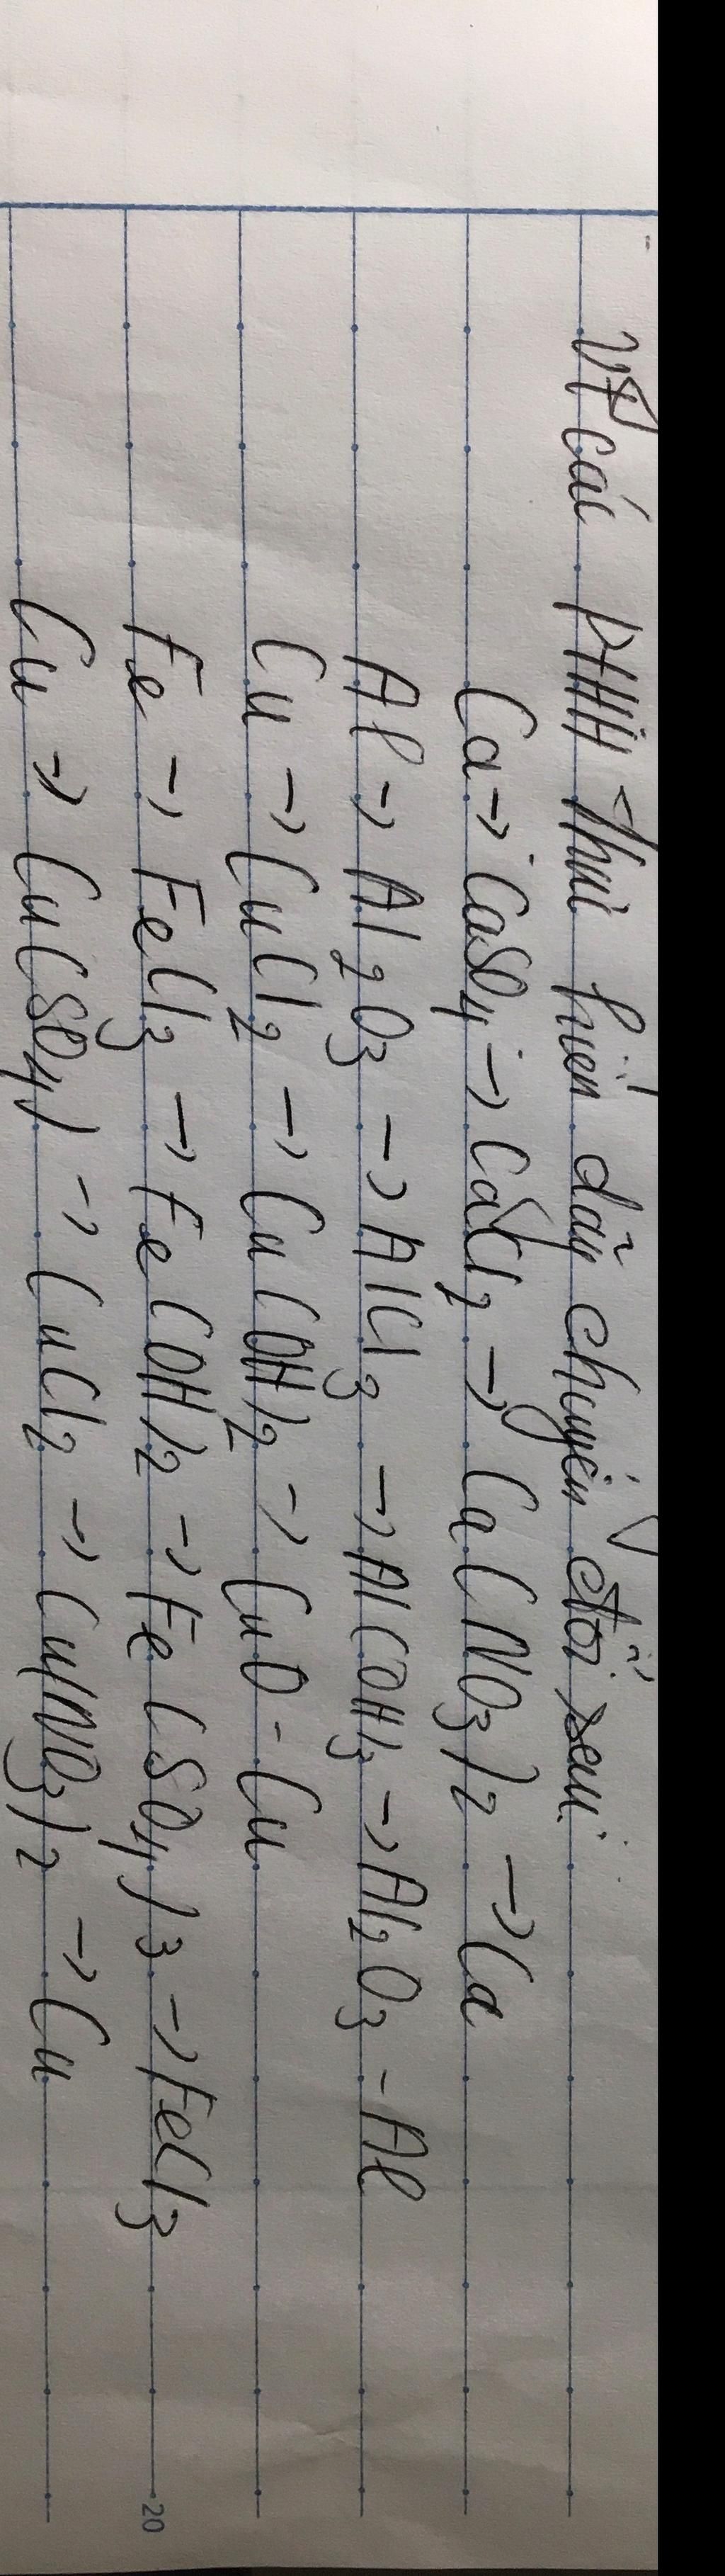 Viết các PTHH thực hiện dãy chuyển đổi sau:
Ca → CaSO4 → CaCl2 → Ca(NO3)2 → Ca
Al → Al2O3 → AlCl3 → Al(OH)3 → Al2O3 - Al
Cu → CuCl2 → Cu(OH)2 → CuO - Cu
Fe → FeCl3 → Fe(OH)2 → Fe(SO4)3 → FeCl3
Cu → Cu(SO4) → CuCl2 → Cu(NO3)2 → Cu
20